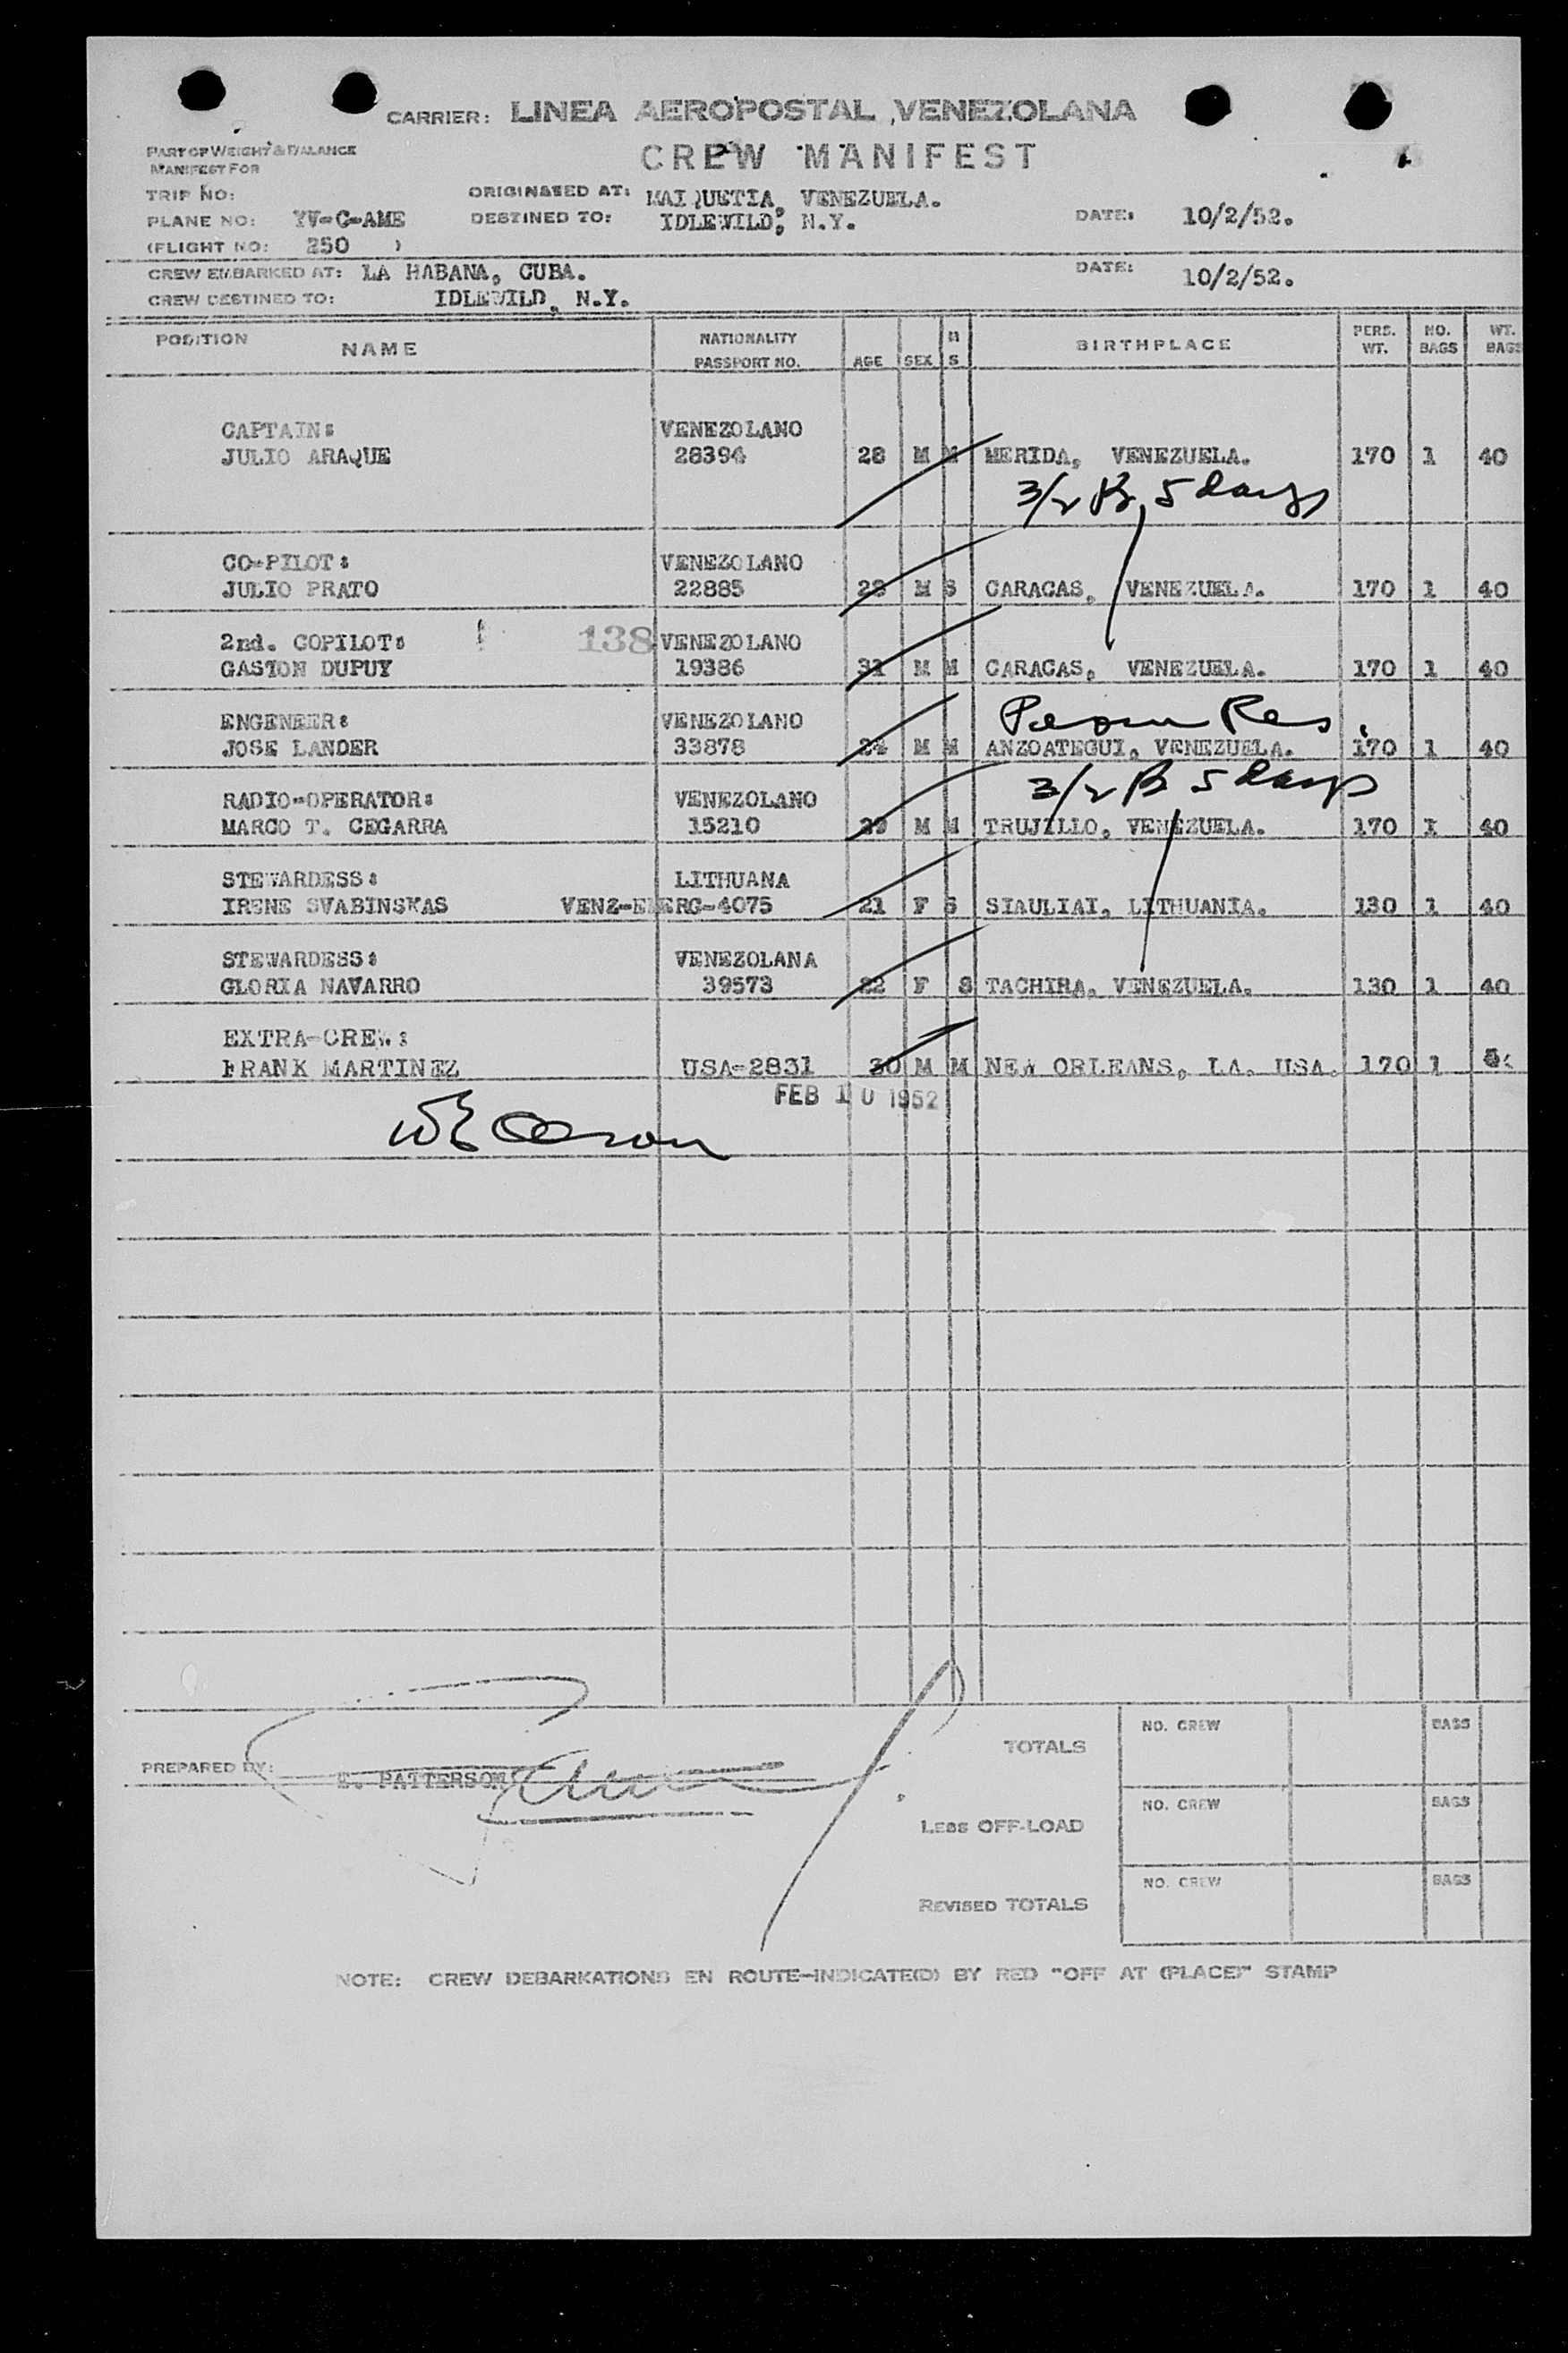 CARRIER: LINEA AEROPOSTAL VENEZOLANA
CREW MANIFEST
PART OF WEIGHT & BALANCE
MANIFEST FOR
TRIP NO:
ORIGINATED AT: MAIQUETIA, VENEZUELA.
PLANE NO: YV-C-AME DESTINED TO: IDLEWILD, N.Y. DATE: 10/2/52.
(FLIGHT NO: 250 )
CREW EMBARKED AT: LA HABANA, CUBA. DATE: 10/2/52.
CREW DESTINED TO: IDLEWILD, N.Y.
POSITION NAME NATIONALITY PASSPORT NO. AGE SEX M S BIRTHPLACE PERS. WT. NO. BAGS WT. BAGS
CAPTAIN: VENEZOLANO
JULIO ARAQUE 28394 28 M M MERIDA, VENEZUELA. 170 1 40
3/2 B, 5 days
CO-PILOT: VENEZOLANO
JULIO PRATO 22885 28 M S CARACAS, VENEZUELA. 170 1 40
2nd. COPILOT: 138 VENEZOLANO
GASTON DUPUY 19386 31 M M CARACAS, VENEZUELA. 170 1 40
ENGENEER: VENEZOLANO Perm Res.
JOSE LANDER 33878 24 M M ANZOATEGUI, VENEZUELA. 170 1 40
3/2 B 5 days
RADIO-OPERATOR: VENEZOLANO
MARCO T. CEGARRA 15210 29 M M TRUJILLO, VENEZUELA. 170 1 40
STEWARDESS: LITHUANA
IRENE SVABINSKAS VENZ-EMERG-4075 21 F S SIAULIAI, LITHUANIA. 130 1 40
STEWARDESS: VENEZOLANA
GLORIA NAVARRO 39573 22 F S TACHIRA, VENEZUELA. 130 1 40
EXTRA-CREW:
FRANK MARTINEZ USA-2831 30 M M NEW ORLEANS, LA. USA. 170 1
FEB 10 1952
TOTALS NO. CREW BAGS
PREPARED BY: E. PATTERSON
LESS OFF-LOAD NO. CREW BAGS
REVISED TOTALS NO. CREW BAGS
NOTE: CREW DEBARKATIONS EN ROUTE-INDICATE(D) BY RED "OFF AT (PLACE)" STAMP